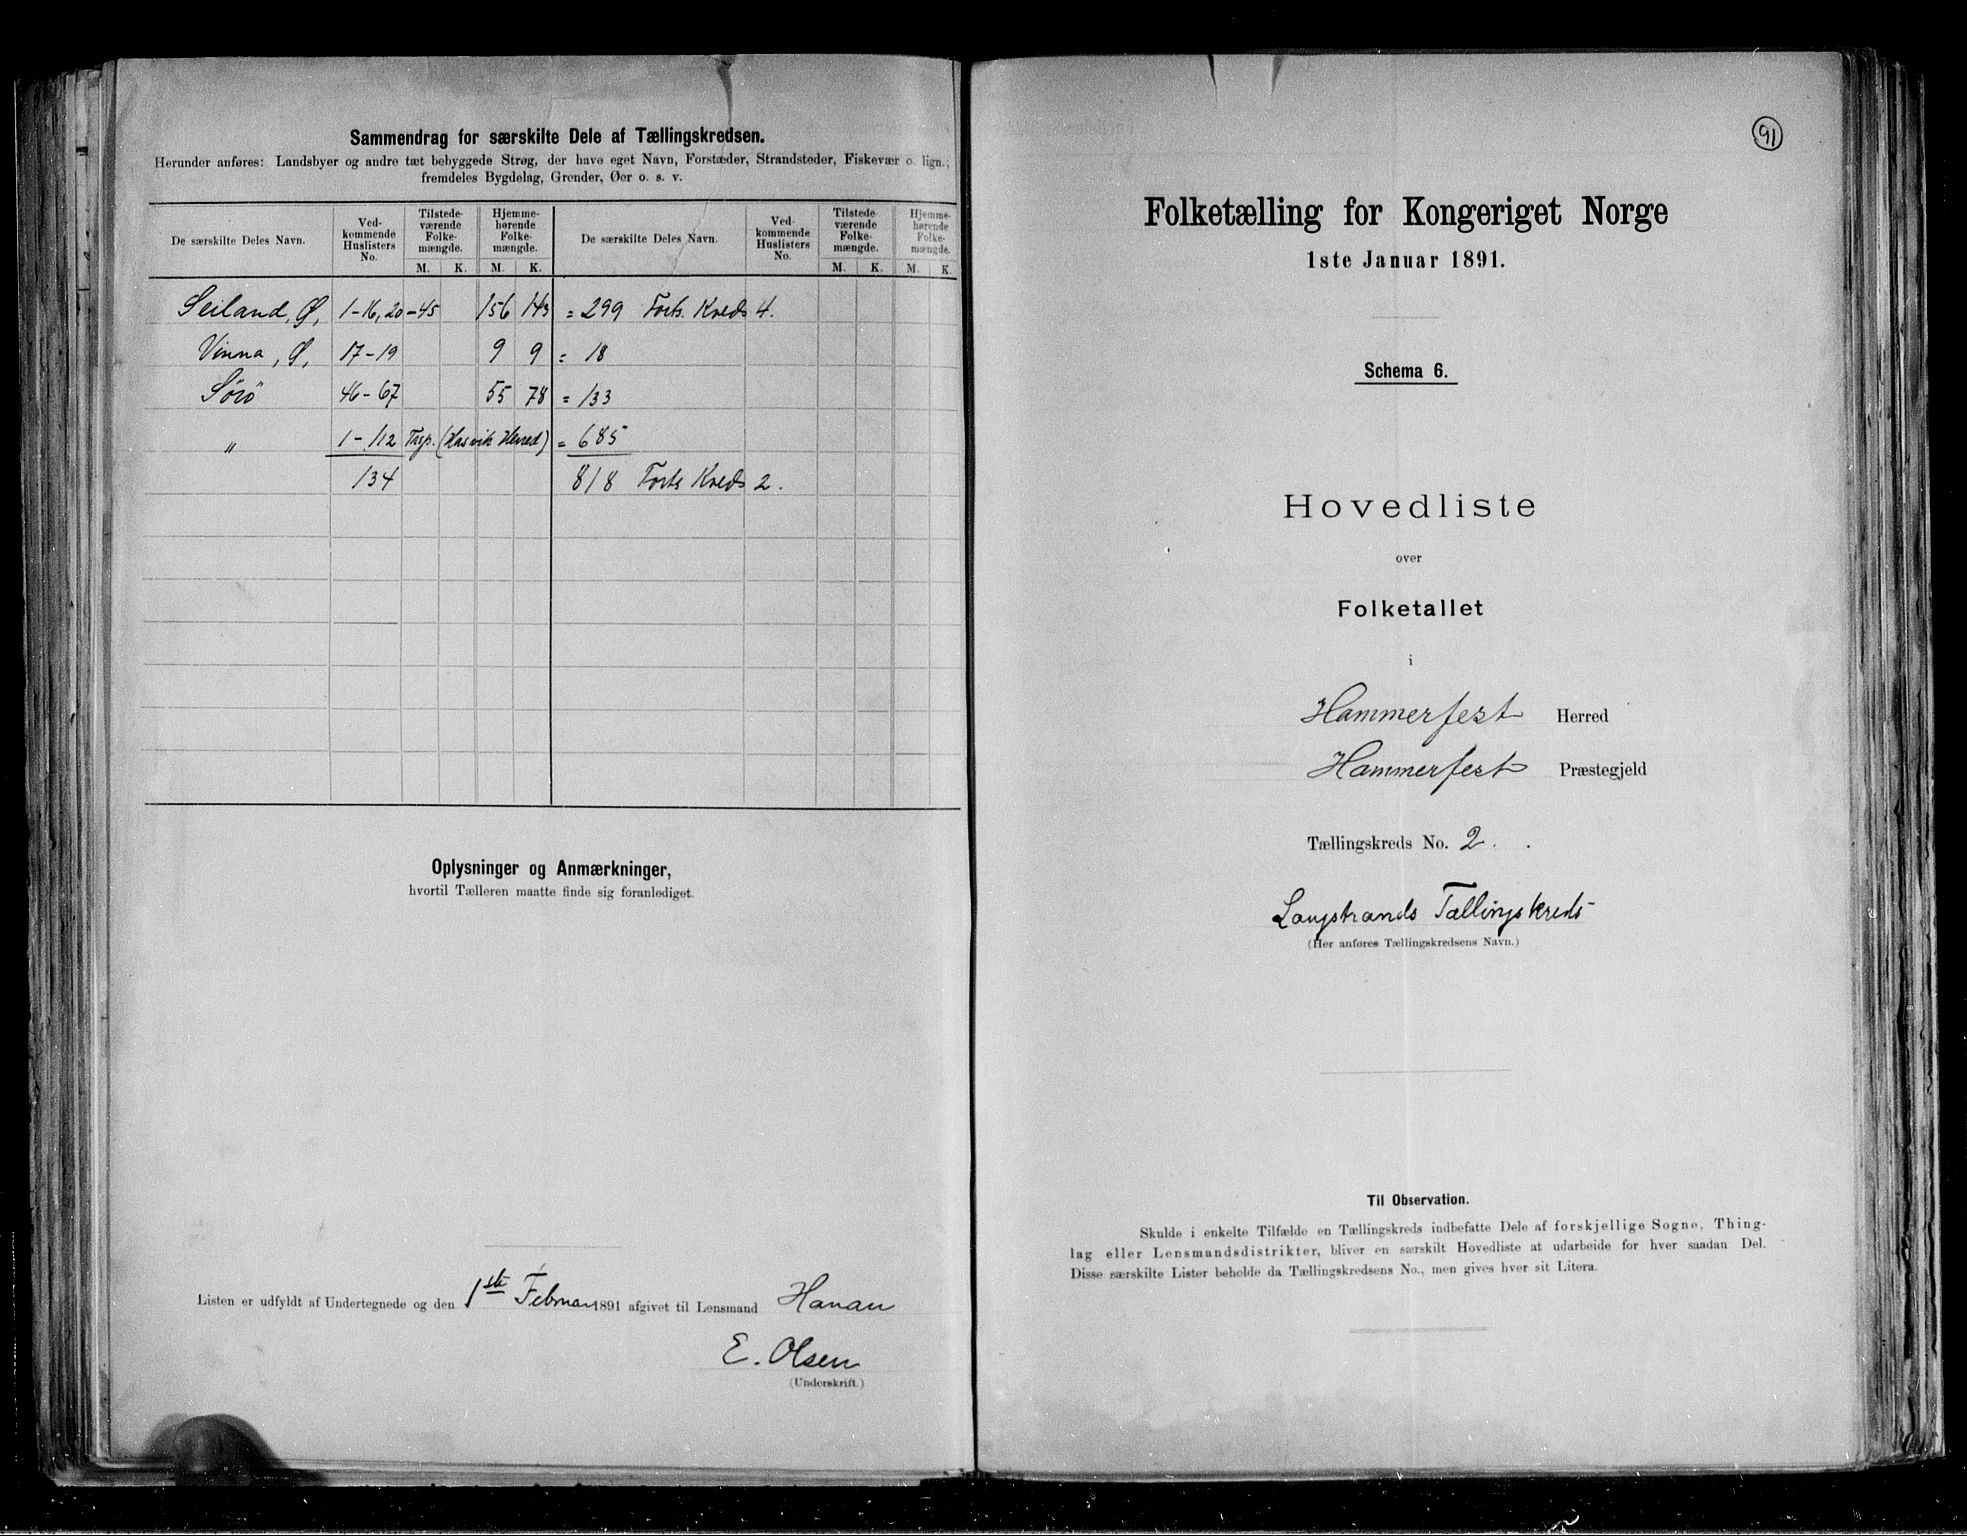 Sammendrag for særskilte Dele af Tællingskredsen.
Herunder anføres: Landsbyer og andre tæt bebyggede Strøg, der have eget Navn, Forstæder, Strandsteder, Fiskevær o. lign.;
fremdeles Bygdelag, Grender, Øer o. s. v.
De særskilte Deles Navn. Ved-kommende Huslisters No. Tilstede-værende Folke-mængde. Hjemme-hørende Folke-mængde. De særskilte Deles Navn. Ved-kommende Huslisters No. Tilstede-værende Folke-mængde. Hjemme-hørende Folke-mængde.
M. K. M. K. M. K. M. K.
Seiland, Ø, 1-16, 20-45 156 143 = 299 Forts. Kreds 4.
Vinna, Ø, 17-19 9 9 = 18
Sørö 46-67 55 78 = 133
" 1-112 (Hasvik Herred) = 685
134 818 Forts Kreds 2.
Oplysninger og Anmærkninger,
hvortil Tælleren maatte finde sig foranlediget.
Listen er udfyldt af Undertegnede og den 1ste Februar 1891 afgivet til Lensmand Hanan
E. Olsen
(Underskrift.)
91
Folketælling for Kongeriget Norge
1ste Januar 1891.
Schema 6.
Hovedliste
over
Folketallet
i
Hammerfest Herred
Hammerfest Præstegjeld
Tællingskreds No. 2.
Langstrands Tællingskreds
(Her anføres Tællingskredsens Navn.)
Til Observation.
Skulde i enkelte Tilfælde en Tællingskreds indbefatte Dele af forskjellige Sogne, Thing-
lag eller Lensmandsdistrikter, bliver en særskilt Hovedliste at udarbeide for hver saadan Del.
Disse særskilte Lister beholde da Tællingskredsens No., men gives hver sit Litera.